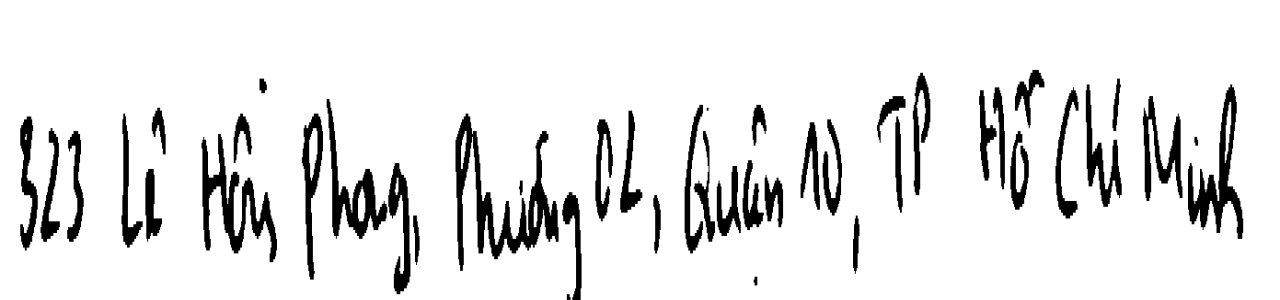 323 Lê Hồng Phong, Phường 02, Quận 10, TP Hồ Chí Minh